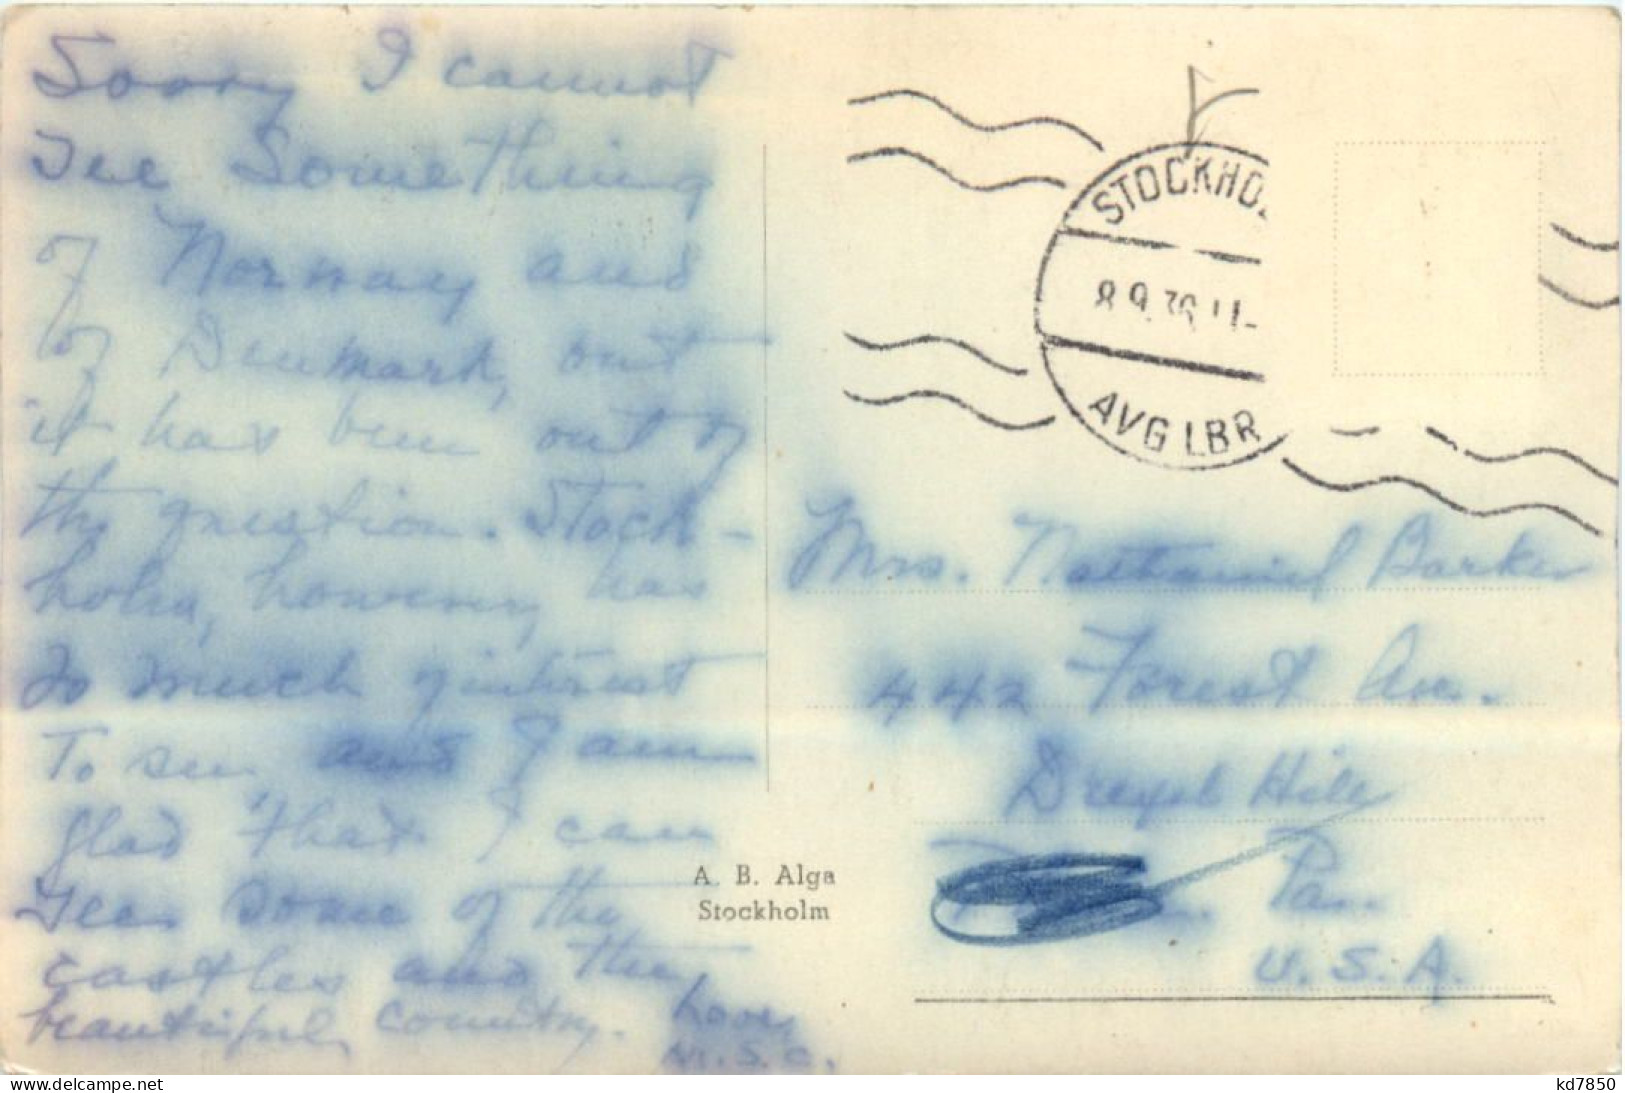 Sorry I cannot
see Something
of Norway and
of Denmark, but
it has been out of
the question. Stock-
holm, however, has
so much of interest
To see, and I am
glad that I can
see some of the
castles and the
beautiful country. Love,
M.S.C.
STOCKHOL
8 9.36 11-
AVG LBR
Mrs. Nathaniel Barker
442 Forest Ave.
Drexel Hill
Pa.
U.S.A.
A. B. Alga
Stockholm
delcampe.net
kd7850